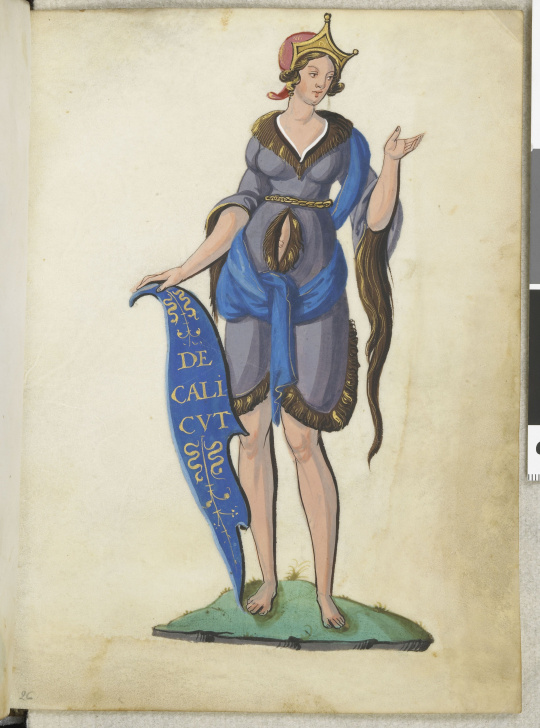 DE
CALI
CVT
26